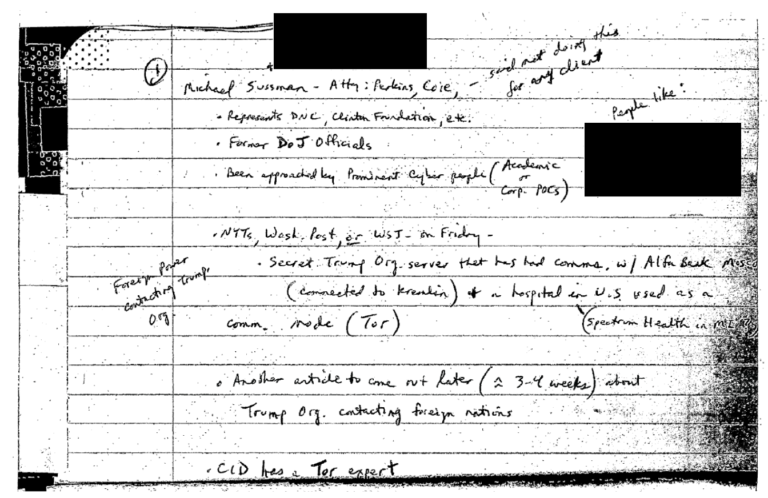 1
Michael Sussman - Atty: Perkins, Coie, - said not doing this
for any client
• Represents DNC, Clinton Foundation, etc.
People like:
• Former DoJ Officials
• Been approached by Prominent Cyber people (Academic
or
Corp. POCs)
• NYTs, Wash. Post, or WSJ - on Friday -
• Secret Trump Org. server that has had comms. w/ Alfa Bank
(connected to Kremlin) + a hospital in U.S. used as a
comm. node (Tor)
(Spectrum Health in
Foreign Power
contacting Trump
Org.
• Another article to come out later (≈ 3-4 weeks) about
Trump Org. contacting foreign nations
• CID has a Tor expert